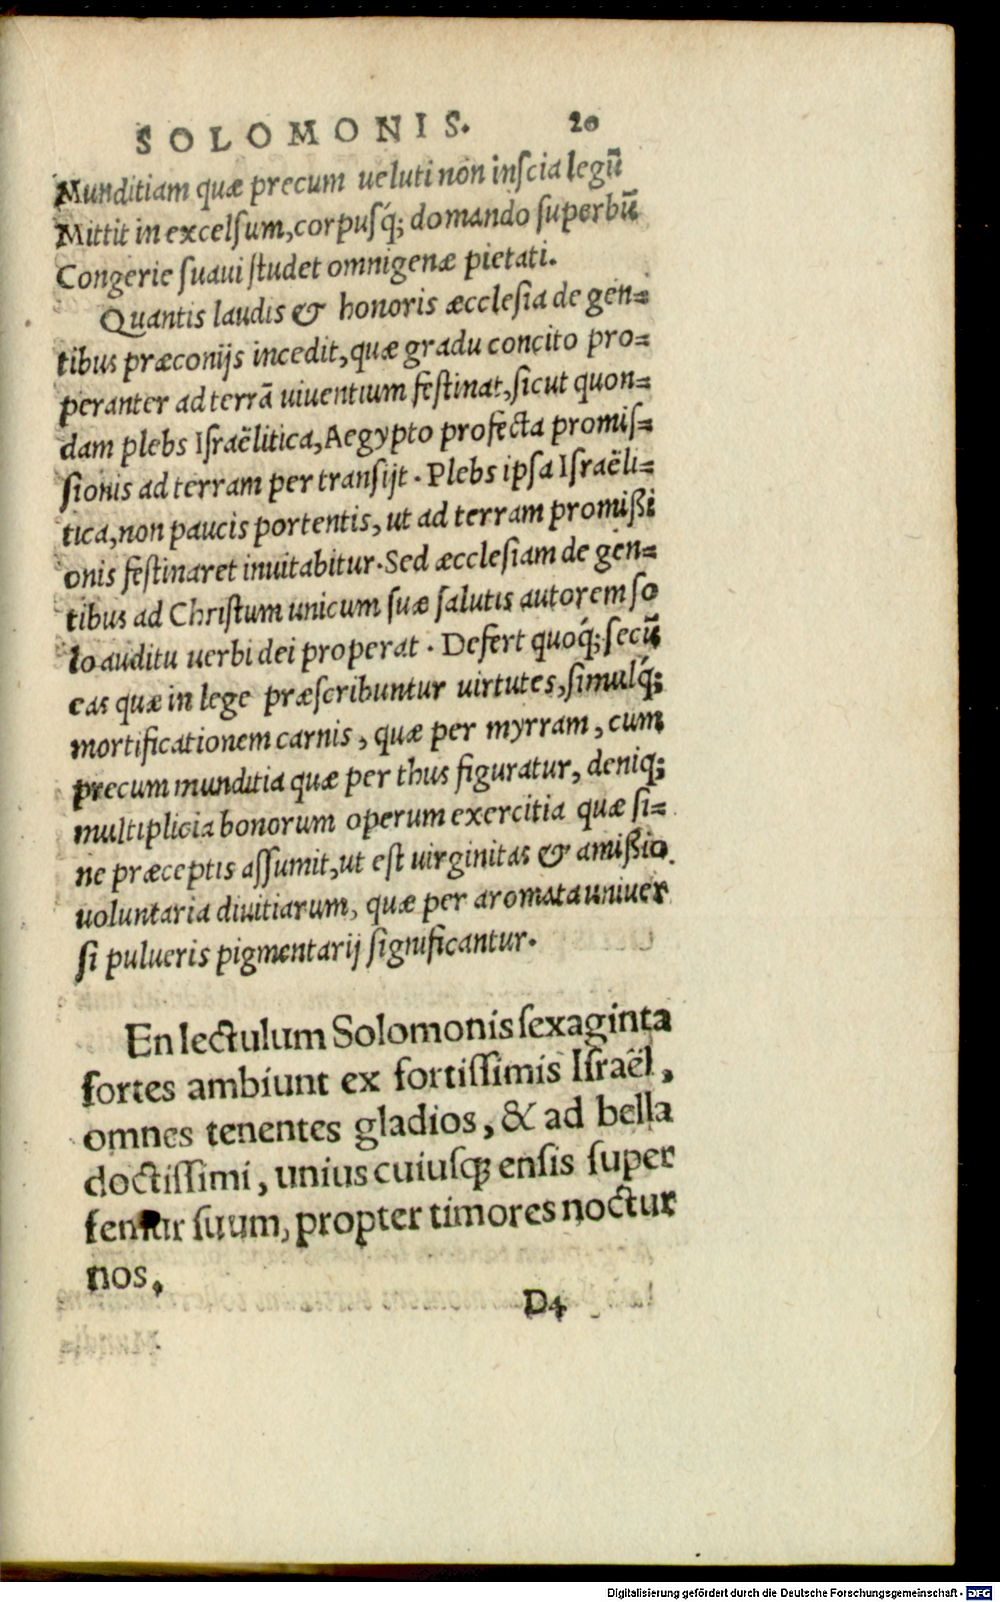 SOLOMONIS. 20
Munditiam quæ precum ueluti non inſcia legū
Mittit in excelſum, corpuſq́; domando ſuperbū
Congerie ſuaui ſtudet omnigenæ pietati.
Quantis laudis & honoris æccleſia de gen=
tibus præconijs incedit, quæ gradu concito pro=
peranter ad terrā uiuentium feſtinat, ſicut quon=
dam plebs Iſraëlitica, Aegypto profecta promiſ=
ſionis ad terram per tranſijt. Plebs ipſa Iſraëli=
tica, non paucis portentis, ut ad terram promißi
onis feſtinaret inuitabitur. Sed æccleſiam de gen=
tibus ad Chriſtum unicum ſuæ ſalutis autorem ſo
lo auditu uerbi dei properat. Defert quoq́; ſecū
eas quæ in lege præſcribuntur uirtutes, ſimulq́;
mortificationem carnis, quæ per myrram, cum
precum munditia quæ per thus figuratur, deniq;
multiplicia bonorum operum exercitia quæ ſi=
ne præceptis aſſumit, ut eſt uirginitas & amißio
uoluntaria diuitiarum, quæ per aromata uniuer
ſi pulueris pigmentarij ſignificantur.
En lectulum Solomonis ſexaginta
fortes ambiunt ex fortiſſimis Iſraël,
omnes tenentes gladios, & ad bella
doctiſſimi, unius cuiuſq; enſis ſuper
femur ſuum, propter timores noctur
nos.
D4
Digitalisierung gefördert durch die Deutsche Forschungsgemeinschaft - DFG